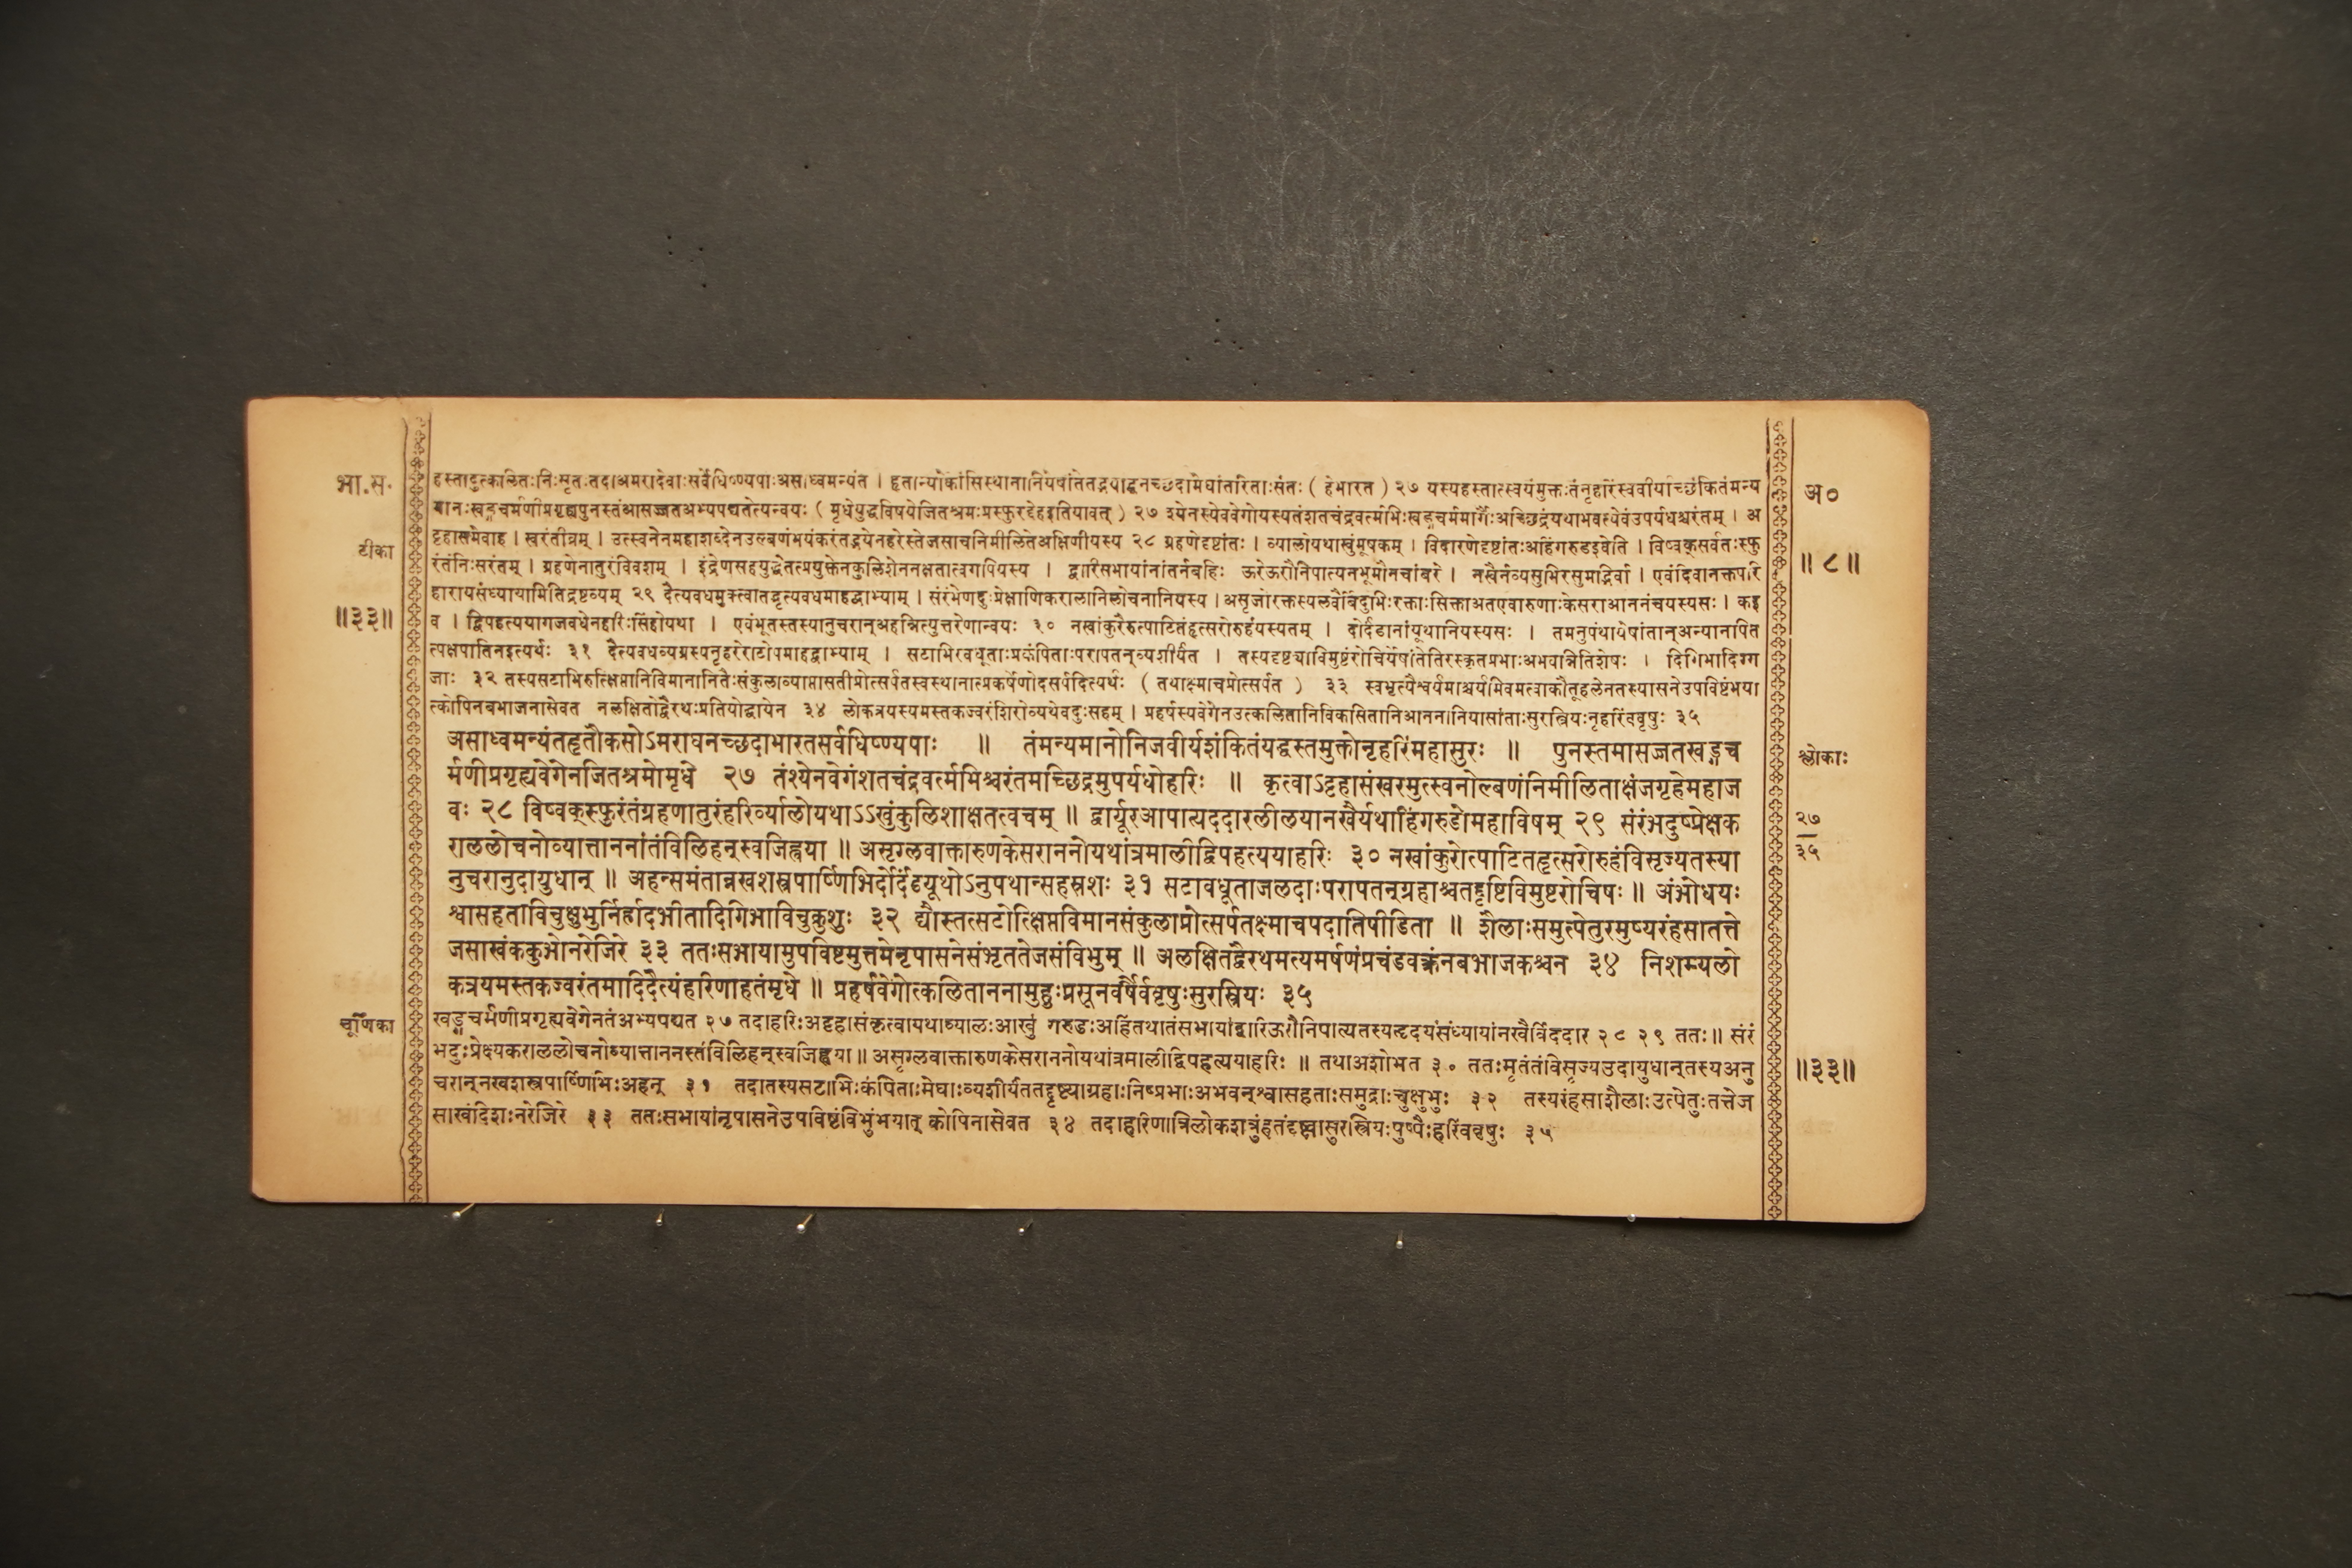 भा.स.
हस्तादुत्कालितःनिःसृतःतदाअमरादेवाःसर्वेधिष्ण्यपाःअसाध्वमन्यंत । हृतान्योकांसिस्थानानियेषांतेतद्भयाद्घनच्छदामेघांतरिताःसंतः ( हेभारत ) २७ यस्यहस्तात्स्वयंमुक्तःतंनृहरिंस्ववीर्याच्छंकितंमन्य
मानःखड्गचर्मणीप्रगृह्यपुनस्तंआसज्जतअभ्यपद्यतेत्यन्वयः ( मृधेयुद्धविषयेजितश्रमःप्रस्फुरद्देहइतियावत् ) २७ श्येनस्येववेगोयस्यतंशतचंद्रवर्त्मभिःखड्गचर्ममार्गैःअच्छिद्रंयथाभवत्येवंउपर्यधश्चरंतम् । अ
टीका
ट्टहासमेवाह । खरंतीव्रम् । उत्स्वनेनमहाशब्देनउल्बणंभयंकरंतद्भयेनहरेस्तेजसाचनिमीलितेअक्षिणीयस्य २८ ग्रहणेदृष्टांतः । व्यालोयथाखुंमूषकम् । विदारणेदृष्टांतःअहिंगरुडइवेति । विष्वक्सर्वतःस्फु
रंतंनिःसरंतम् । ग्रहणेनातुरंविवशम् । इंद्रेणसहयुद्धेतत्प्रयुक्तेनकुलिशेननक्षतात्वगपियस्य । द्वारिसभायांनांतर्नबहिः ऊरेऊरौनिपात्यनभूमौनचांबरे । नखैर्नव्यसुभिरसुमद्भिर्वा । एवंदिवानक्तंपरि
हारायसंध्यायामितिद्रष्टव्यम् २९ दैत्यवधमुक्त्वातद्भृत्यवधमाहद्वाभ्याम् । संरंभेणदुःप्रेक्षाणिकरालानिलोचनानियस्य । असृजोरक्तस्यलवैर्बिंदुभिःरक्ताःसिक्ताअतएवारुणाःकेसराआननंचयस्यसः । कइ
॥३३॥
व । द्विपहत्ययागजवधेनहरिःसिंहोयथा । एवंभूतस्तस्यानुचरान्अहन्नित्युत्तरेणान्वयः ३० नखांकुरैरुत्पाटितंहृत्सरोरुहंयस्यतम् । दोर्दंडानांयूथानियस्यसः । तमनुपंथायेषांतान्अन्यानपित
त्पक्षपातिनइत्यर्थः ३१ दैत्यवधव्यग्रस्यनृहरेराटोपमाहद्वाभ्याम् । सटाभिरवधूताःप्रकंपिताःपरापतन्व्यशीर्यंत । तस्यदृष्ट्याविमुष्टंरोचिर्येषांतेतिरस्कृतप्रभाःअभवन्नितिशेषः । दिगिभादिग्ग
जाः ३२ तस्यसटाभिरुत्क्षिप्तानिविमानानितैःसंकुलाव्याप्तासतीप्रोत्सर्पतस्वस्थानात्प्रकर्षेणोदसर्पदित्यर्थः ( तथाक्ष्माचप्रोत्सर्पत ) ३३ स्वभृत्यैश्वर्यमाश्चर्यमिवमत्वाकौतूहलेनतस्यासनेउपविष्टंभया
त्कोपिनबभाजनासेवत नलक्षितोद्वैरथःप्रतियोद्धायेन ३४ लोकत्रयस्यमस्तकज्वरंशिरोव्यथेवदुःसहम् । प्रहर्षस्यवेगेनउत्कलितानिविकसितानिआननानियासांताःसुरस्त्रियःनृहरिंववृषुः ३५
असाध्वमन्यंतहृतौकसोऽमराघनच्छदाभारतसर्वधिष्ण्यपाः ॥ तंमन्यमानोनिजवीर्यशंकितंयद्धस्तमुक्तोनृहरिंमहासुरः ॥ पुनस्तमासज्जतखड्गच
र्मणीप्रगृह्यवेगेनजितश्रमोमृधे २७ तंश्येनवेगंशतचंद्रवर्त्मभिश्चरंतमच्छिद्रमुपर्यधोहरिः ॥ कृत्वाऽट्टहासंखरमुत्स्वनोल्बणंनिमीलिताक्षंजगृहेमहाज
वः २८ विष्वक्स्फुरंतंग्रहणातुरंहरिर्व्यालोयथाऽऽखुंकुलिशाक्षतत्वचम् ॥ द्वार्यूरआपात्यददारलीलयानखैर्यथाहिंगरुडोमहाविषम् २९ संरंभदुष्प्रेक्षक
राललोचनोव्यात्ताननांतंविलिहन्स्वजिह्वया ॥ असृग्लवाक्तारुणकेसराननोयथांत्रमालीद्विपहत्ययाहरिः ३० नखांकुरोत्पाटितहृत्सरोरुहंविसृज्यतस्या
नुचरानुदायुधान् ॥ अहन्समंतान्नखशस्त्रपार्ष्णिभिर्दोर्दंडयूथोऽनुपथान्सहस्रशः ३१ सटावधूताजलदाःपरापतन्ग्रहाश्चतद्दृष्टिविमुष्टरोचिषः ॥ अंभोधयः
श्वासहताविचुक्षुभुर्निर्ह्रादभीतादिगिभाविचुक्रुशुः ३२ द्यौस्तत्सटोत्क्षिप्तविमानसंकुलाप्रोत्सर्पतक्ष्माचपदातिपीडिता ॥ शैलाःसमुत्पेतुरमुष्यरंहसातत्ते
जसाखंककुभोनरेजिरे ३३ ततःसभायामुपविष्टमुत्तमेनृपासनेसंभृततेजसंविभुम् ॥ अलक्षितद्वैरथमत्यमर्षणंप्रचंडवक्त्रंनबभाजकश्चन ३४ निशम्यलो
कत्रयमस्तकज्वरंतमादिदैत्यंहरिणाहतंमृधे ॥ प्रहर्षवेगोत्कलिताननामुहुःप्रसूनवर्षैर्ववृषुःसुरस्त्रियः ३५
चूर्णिका
खड्गचर्मणीप्रगृह्यवेगेनतंअभ्यपद्यत २७ तदाहरिःअट्टहासंकृत्वायथाव्यालःआखुं गरुडःअहिंतथातंसभायांद्वारिऊरौनिपात्यतस्यहृदयंसंध्यायांनखैर्विददार २८ २९ ततः॥ संरं
भदुःप्रेक्ष्यकराललोचनोव्यात्ताननस्तंविलिहन्स्वजिह्वया॥ असृग्लवाक्तारुणकेसराननोयथांत्रमालीद्विपहत्ययाहरिः ॥ तथाअशोभत ३० ततःमृतंतंविसृज्यउदायुधान्तस्यअनु
चरान्नखशस्त्रपार्ष्णिभिःअहन् ३१ तदातस्यसटाभिःकंपिताःमेघाःव्यशीर्यंततद्दृष्ट्याग्रहाःनिष्प्रभाःअभवन्श्वासहताःसमुद्राःचुक्षुभुः ३२ तस्यरंहसाशैलाःउत्पेतुःतत्तेज
साखंदिशःनरेजिरे ३३ ततःसभायांनृपासनेउपविष्टंविभुंभयात् कोपिनासेवत ३४ तदाहरिणात्रिलोकशत्रुंहतंदृष्ट्वासुरस्त्रियःपुष्पैःहरिंववृषुः ३५
अ०
॥ ८ ॥
श्लोकाः
२७
३५
॥३३॥